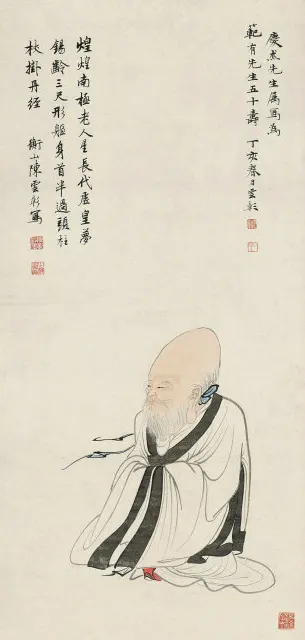 慶先生属為
範有先生五十壽 丁亥春日雲彰
煌煌南極老人星長代虛皇夢
錫齡三尺形軀身首半過頭拄
杖掛丹經 衡山陳雲彰寫